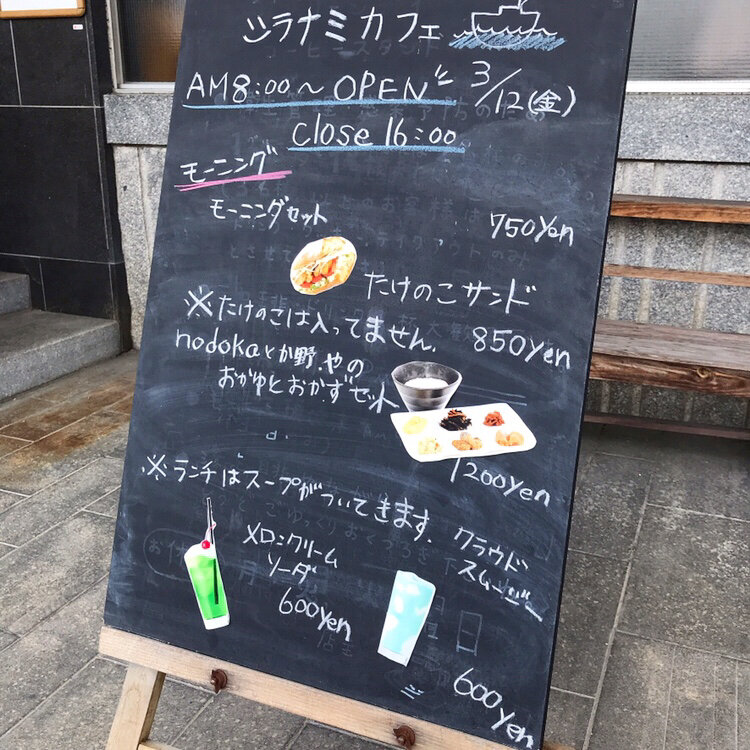 シラナミカフェ
AM8:00〜OPEN 3/12(金)
close 16:00
モーニング
モーニングセット 750yen
たけのこサンド
※たけのこは入ってません. 850yen
nodokaとか野.やの
おかゆとおかずセット
1200yen
※ランチはスープがついてきます.
メロンクリーム
ソーダ
600yen
クラウド
スムージー
600yen